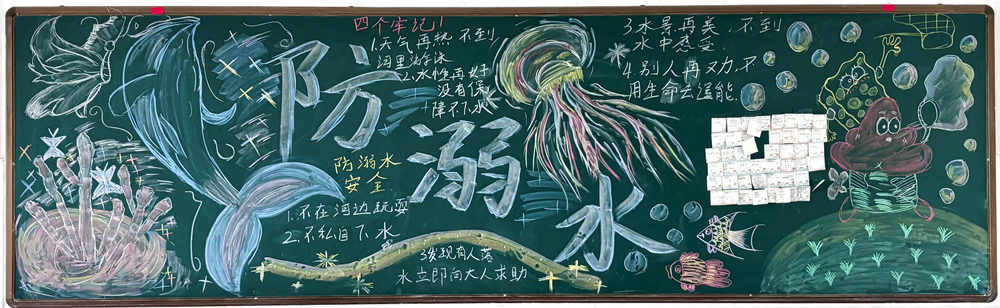 四个牢记!
1.天气再热 不到
河里游泳
2.水性再好
没有保
障不下水
3.水景再美,不到
水中感受
4.别人再劝,不
用生命去逞能.
防溺水
防溺水
安全
1.不在河边玩耍
2.不私自下水
3发现有人落
水立即向大人求助